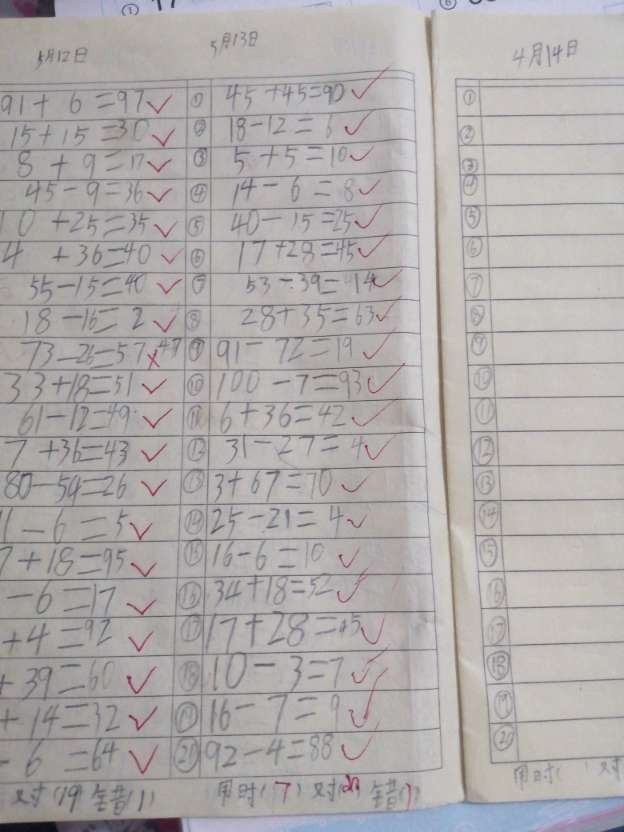 5月12日
91+6=97
15+15=30
8+9=17
45-9=36
10+25=35
4+36=40
55-15=40
18-16=2
73-26=57 47
33+18=51
61-12=49
7+36=43
80-54=26
11-6=5
7+18=95
-6=17
+4=92
+39=60
+14=32
-6=64
对(19) 错(1)
5月13日
① 45+45=90
② 18-12=6
③ 5+5=10
④ 14-6=8
⑤ 40-15=25
⑥ 17+28=45
⑦ 53-39=14
⑧ 28+35=63
⑨ 91-72=19
⑩ 100-7=93
⑪ 6+36=42
⑫ 31-27=4
⑬ 3+67=70
⑭ 25-21=4
⑮ 16-6=10
⑯ 34+18=52
⑰ 17+28=45
⑱ 10-3=7
⑲ 16-7=9
⑳ 92-4=88
用时(7) 对(20) 错( )
4月14日
①
②
③
④
⑤
⑥
⑦
⑧
⑨
⑩
⑪
⑫
⑬
⑭
⑮
⑯
⑰
⑱
⑲
⑳
用时( ) 对